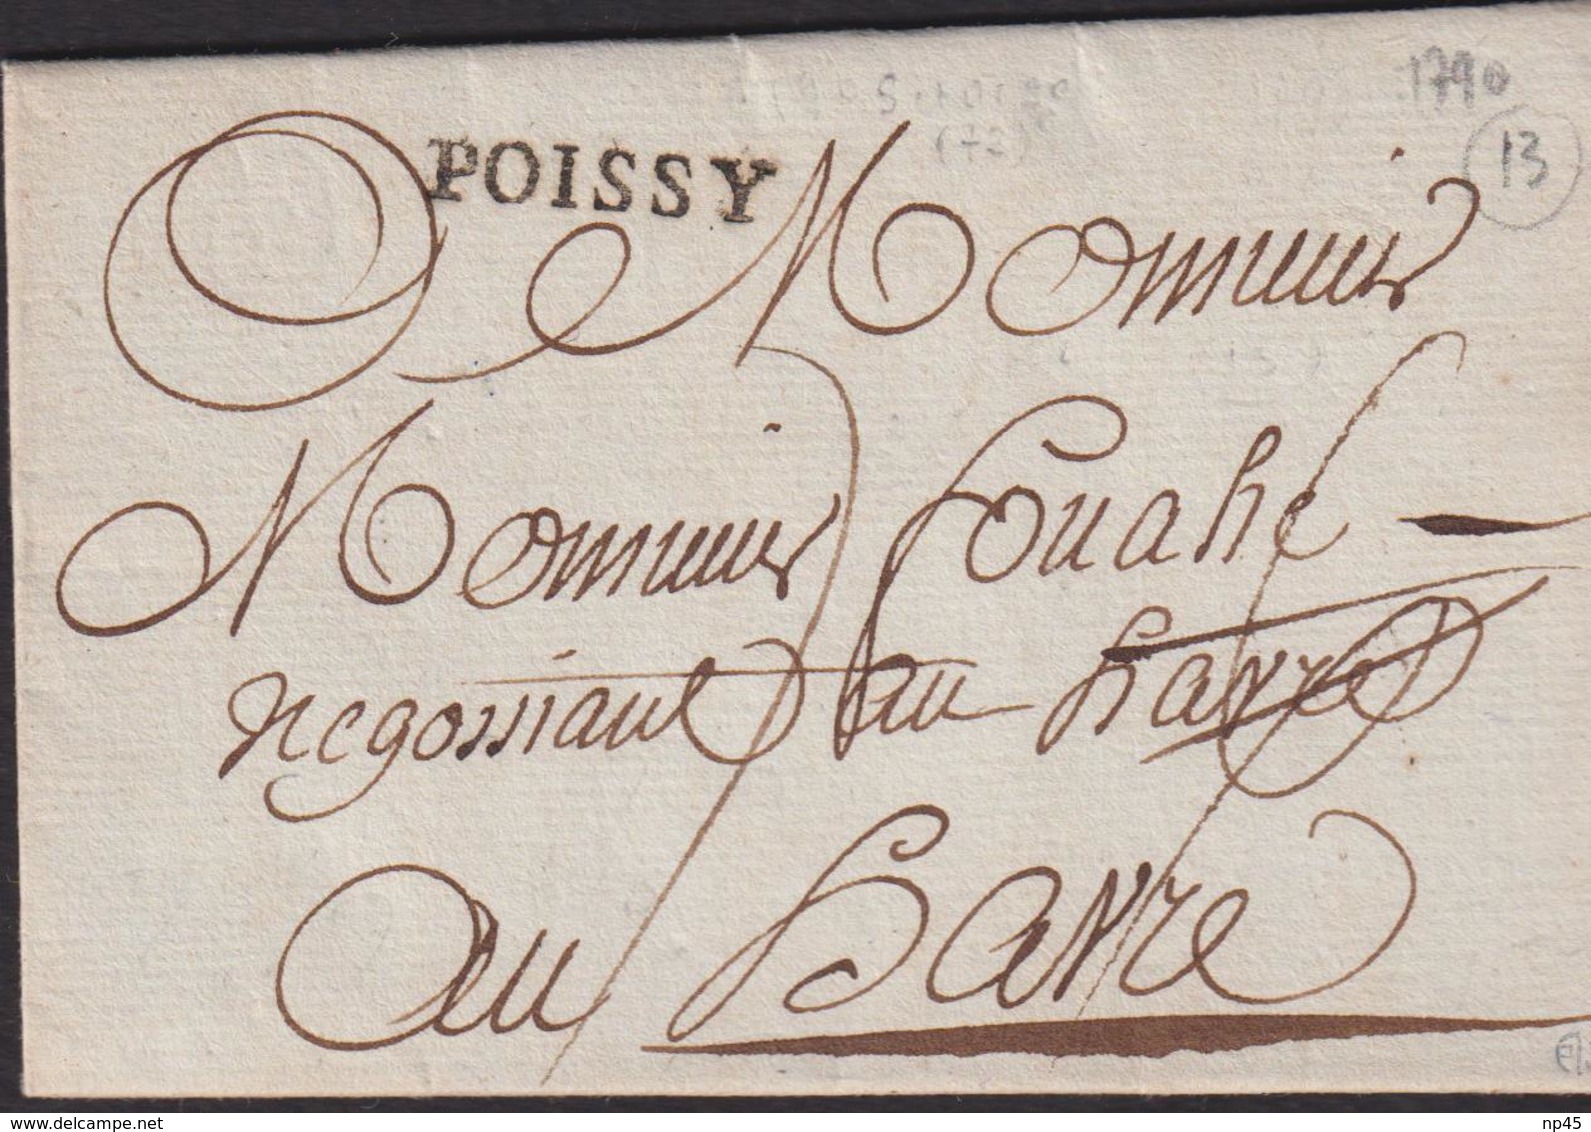 1790
(72)
13
POISSY
Monsieur
Monsieur Fouahe
Negossiant au havre
au Havre
www.delcampe.net
np45